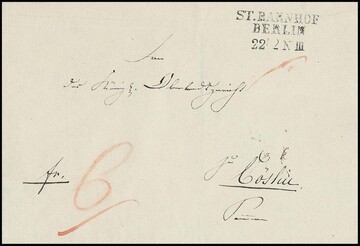 ST. BAHNHOF
BERLIN
22 2 N III
An
das Königl. Oberlandsgericht
fr.
6
zu
Cöslin